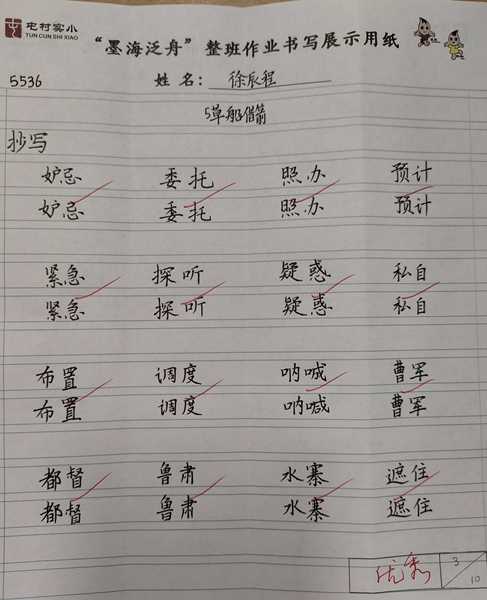 屯村实小
TUN CUN SHI XIAO
“墨海泛舟”整班作业书写展示用纸
5536
姓名：徐辰程
5草船借箭
抄写
妒忌 委托 照办 预计
妒忌 委托 照办 预计
紧急 探听 疑惑 私自
紧急 探听 疑惑 私自
布置 调度 呐喊 曹军
布置 调度 呐喊 曹军
都督 鲁肃 水寨 遮住
都督 鲁肃 水寨 遮住
优秀 3/10